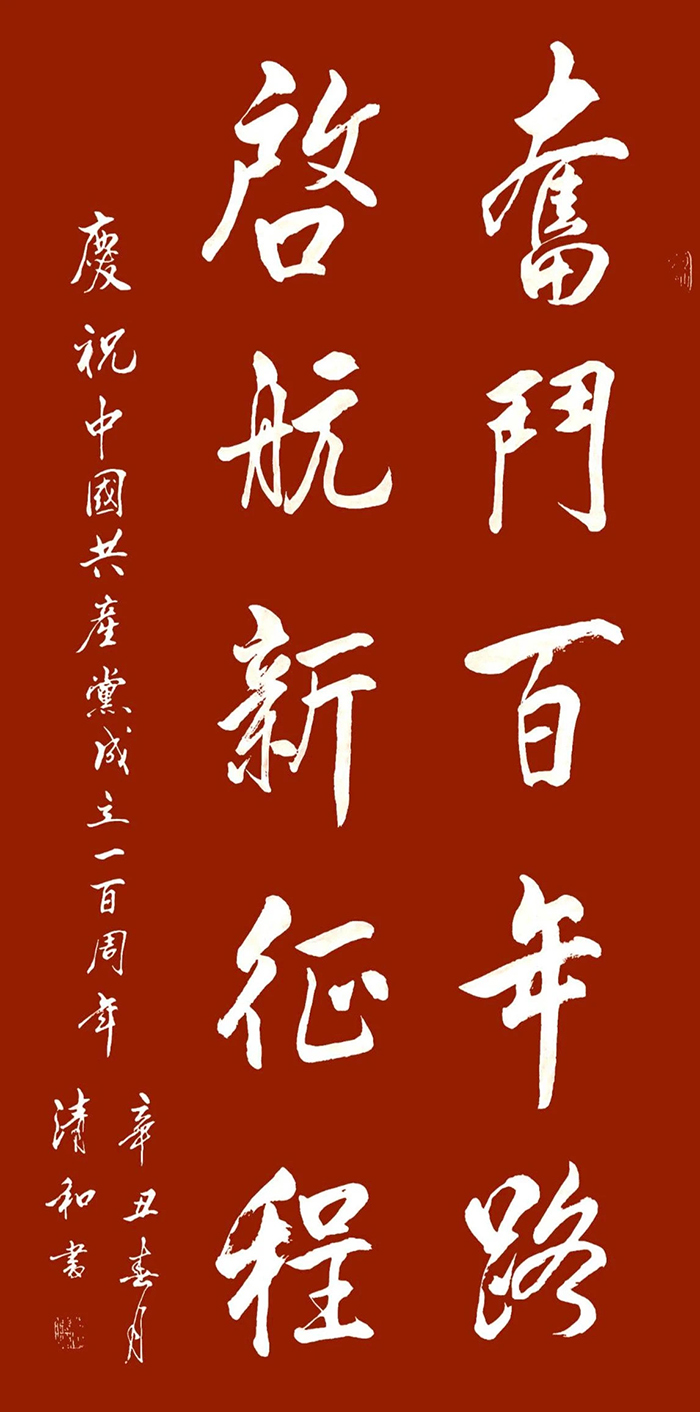 奮鬥百年路
啓航新征程
慶祝中國共産黨成立一百周年
辛丑春月
清和書